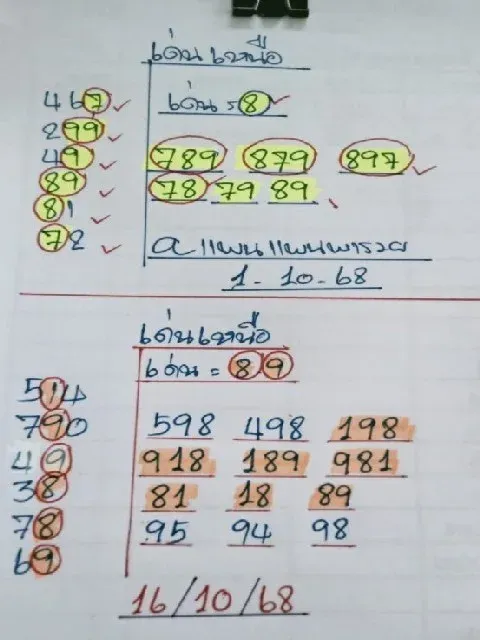 เด่นเหนือ
467
เด่น = 8
299
49
789 879 897
89
78 79 89
81
72
a แพนแพนพารวย
1-10-68
เด่นเหนือ
เด่น = 89
514
790
598 498 198
49
918 189 981
38
81 18 89
78
95 94 98
69
16/10/68